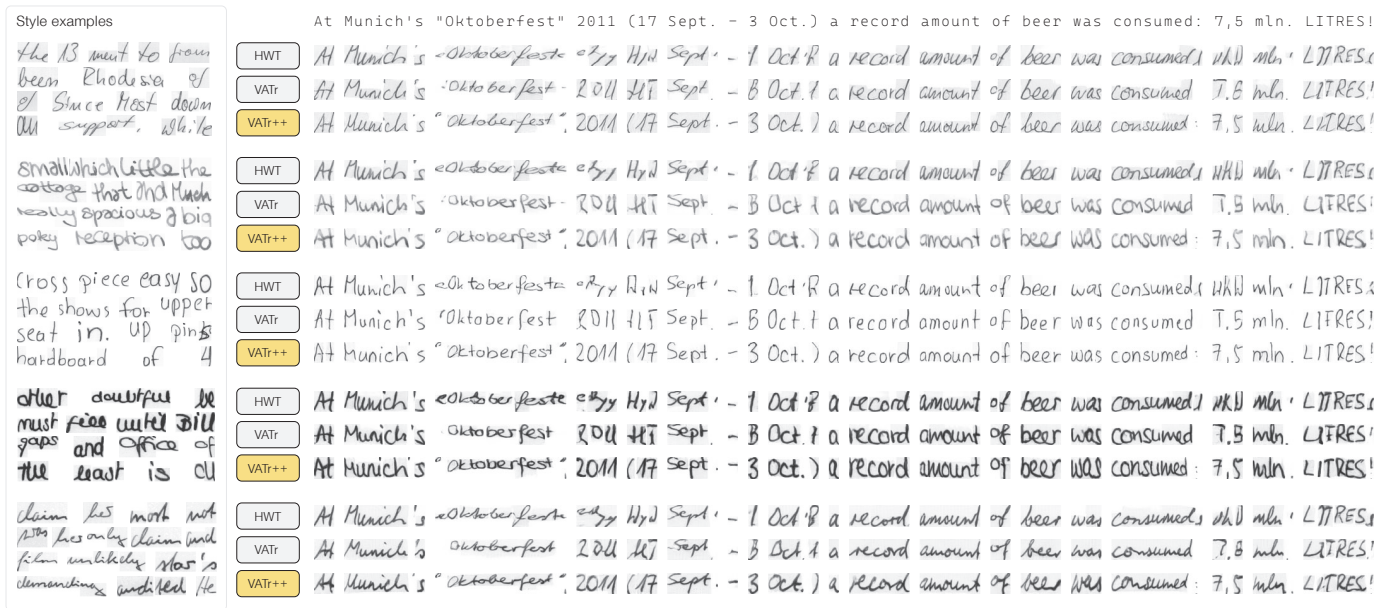 Style examples
At Munich's "Oktoberfest" 2011 (17 Sept. - 3 Oct.) a record amount of beer was consumed: 7,5 mln. LITRES!
the 13 ment to from
been Rhodesia of
of Since Most down
all support. while
HWT At Munich's Oktoberfest Sept. - 1 Oct a record amount of beer was consumed mln. LITRES
VATr At Munich's Oktoberfest - 2011 HT Sept. - B Oct. a record amount of beer was consumed 7.6 mln. LITRES!
VATr++ At Munich's "Oktoberfest", 2011 (17 Sept. - 3 Oct.) a record amount of beer was consumed: 7,5 mln. LITRES!
small which little the
cottage that and Much
really spacious a big
poky reception too
HWT At Munich's Sept. - 1 Oct a record amount of beer was consumed mln. LITRES
VATr At Munich's Oktoberfest - 2011 HT Sept. - B Oct a record amount of beer was consumed 7.5 mln. LITRES
VATr++ At Munich's "Oktoberfest", 2011 (17 Sept. - 3 Oct.) a record amount of beer was consumed: 7,5 mln. LITRES!
Cross piece easy SO
the shows for upper
seat in. UP pins
hardboard of 4
HWT At Munich's Sept. - 1 Oct a record amount of beer was consumed mln. LITRES
VATr At Munich's 'Oktoberfest 2011 Sept. - B Oct. a record amount of beer was consumed 7.5 mln. LITRES!
VATr++ At Munich's "Oktoberfest", 2011 (17 Sept. - 3 Oct.) a record amount of beer was consumed: 7,5 mln. LITRES!
other doubtful be
must free until Bill
gaps and Office of
the least is all
HWT At Munich's Sept. - 1 Oct a record amount of beer was consumed mln. LITRES
VATr At Munich's Oktoberfest 2011 HT Sept. - B Oct. a record amount of beer was consumed 7.5 mln. LITRES!
VATr++ At Munich's "Oktoberfest", 2011 (17 Sept. - 3 Oct.) a record amount of beer was consumed: 7,5 mln. LITRES!
claim his most not
was his only claim and
film unlikely star's
demanding audited He
HWT At Munich's Sept. - 1 Oct a record amount of beer was consumed mln. LITRES
VATr At Munich's Oktoberfest 2011 Sept. - B Oct. a record amount of beer was consumed mln. LITRES!
VATr++ At Munich's "Oktoberfest", 2011 (17 Sept. - 3 Oct.) a record amount of beer was consumed: 7,5 mln. LITRES!